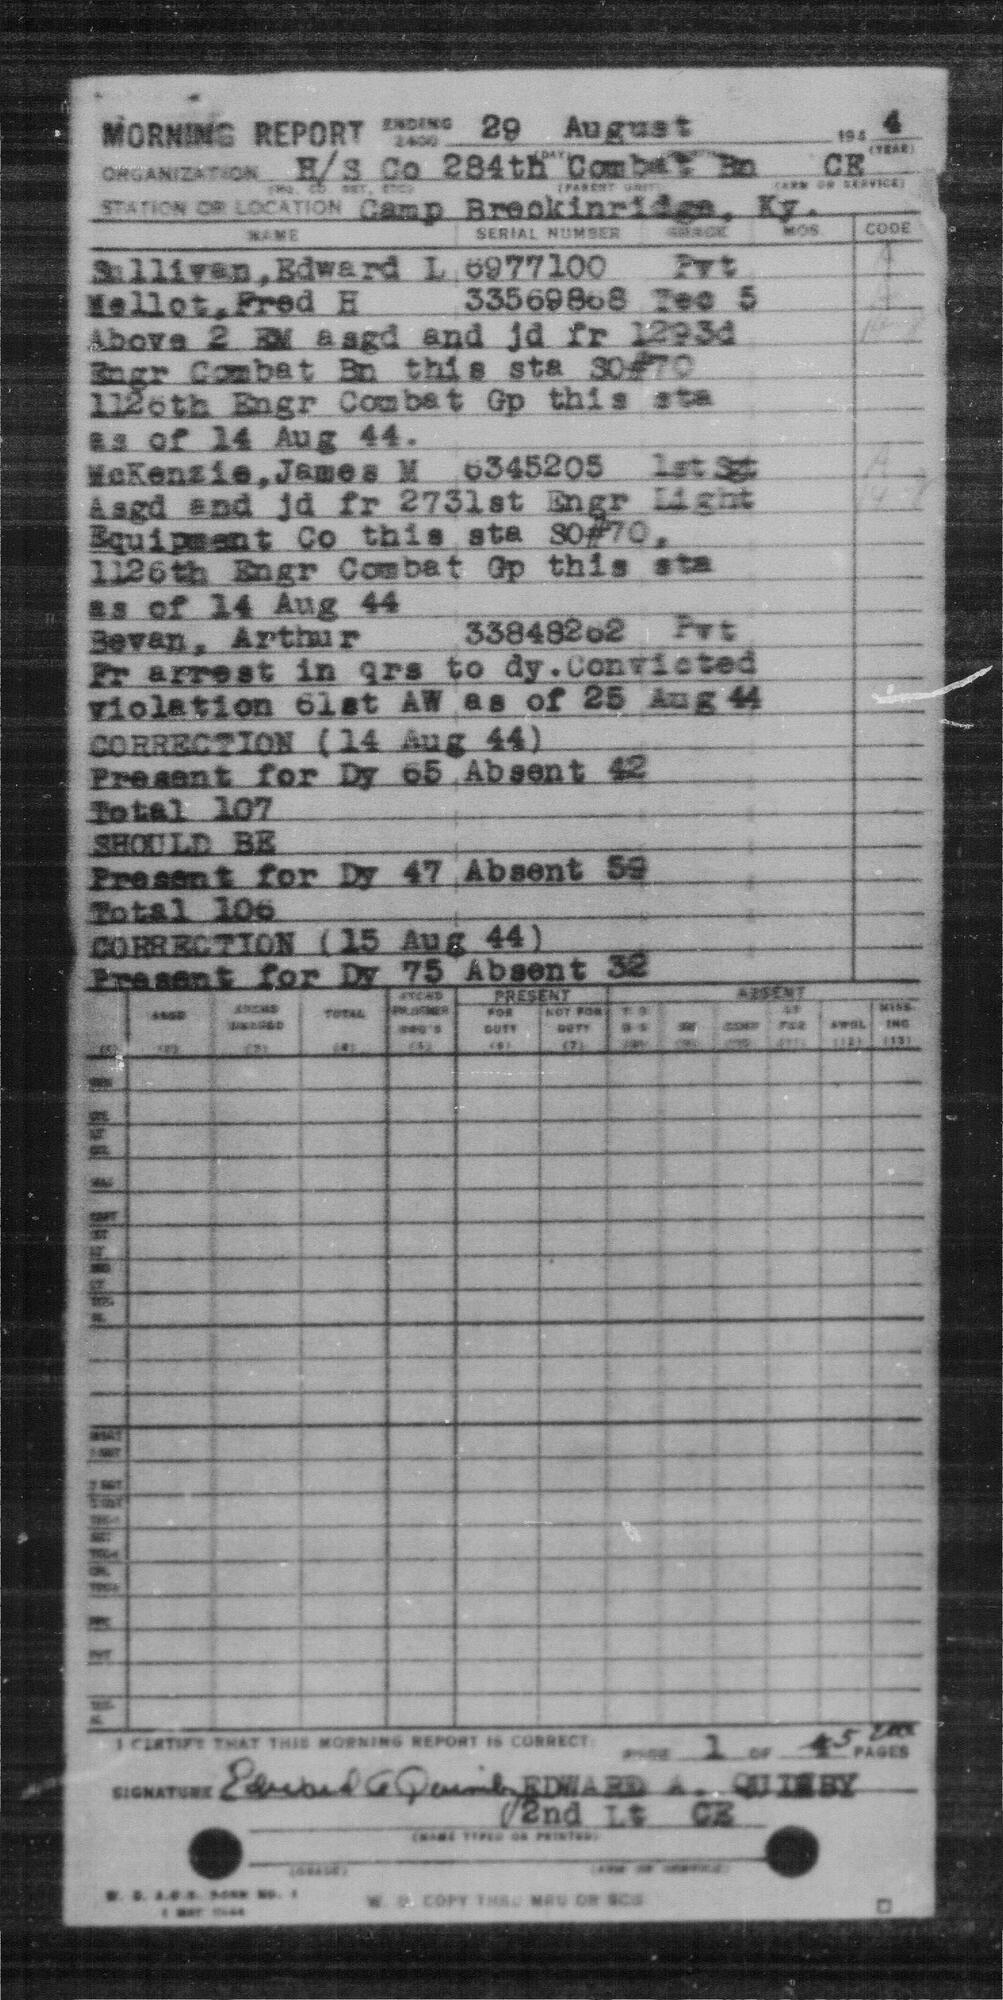 MORNING REPORT ENDING 2400 29 August 194 4
(DAY) (YEAR)
ORGANIZATION H/S Co 284th Combat Bn CE
(HQ. CO. DET, ETC) (PARENT UNIT) (ARM OR SERVICE)
STATION OR LOCATION Camp Breckinridge, Ky.
NAME SERIAL NUMBER GRADE MOS CODE
Sullivan,Edward L 6977100 Pvt A
Mellot,Fred H 33569868 Tec 5 A
Above 2 EM asgd and jd fr 1293d
Engr Combat Bn this sta SO#70
1126th Engr Combat Gp this sta
as of 14 Aug 44.
McKenzie,James M 6345205 1st Sgt A
Asgd and jd fr 2731st Engr Light
Equipment Co this sta SO#70,
1126th Engr Combat Gp this sta
as of 14 Aug 44
Bevan, Arthur 33848262 Pvt
Fr arrest in qrs to dy.Convicted
violation 61st AW as of 25 Aug 44
CORRECTION (14 Aug 44)
Present for Dy 65 Absent 42
Total 107
SHOULD BE
Present for Dy 47 Absent 59
Total 106
CORRECTION (15 Aug 44)
Present for Dy 75 Absent 32
ATCHD PRESENT ABSENT
ASGD TOTAL PRISONER FOR DUTY NOT FOR DUTY SK CONF AWOL MISSING
(1) (2) (3) (4) (5) (6) (7) (12) (13)
MAJ
CAPT
1ST
LT
2ND
LT
1 SGT
T SGT
S SGT
SGT
CPL
PFC
PVT
I CERTIFY THAT THIS MORNING REPORT IS CORRECT:
PAGE 1 OF 4 5 PAGES
SIGNATURE Edward A Quimby EDWARD A. QUIMBY
2nd Lt CE
(NAME TYPED OR PRINTED)
(GRADE) (ARM OR SERVICE)
W. D. A.G.O. FORM NO. 1
1 MAY 1944
W. D. COPY THRU MRU OR SCU